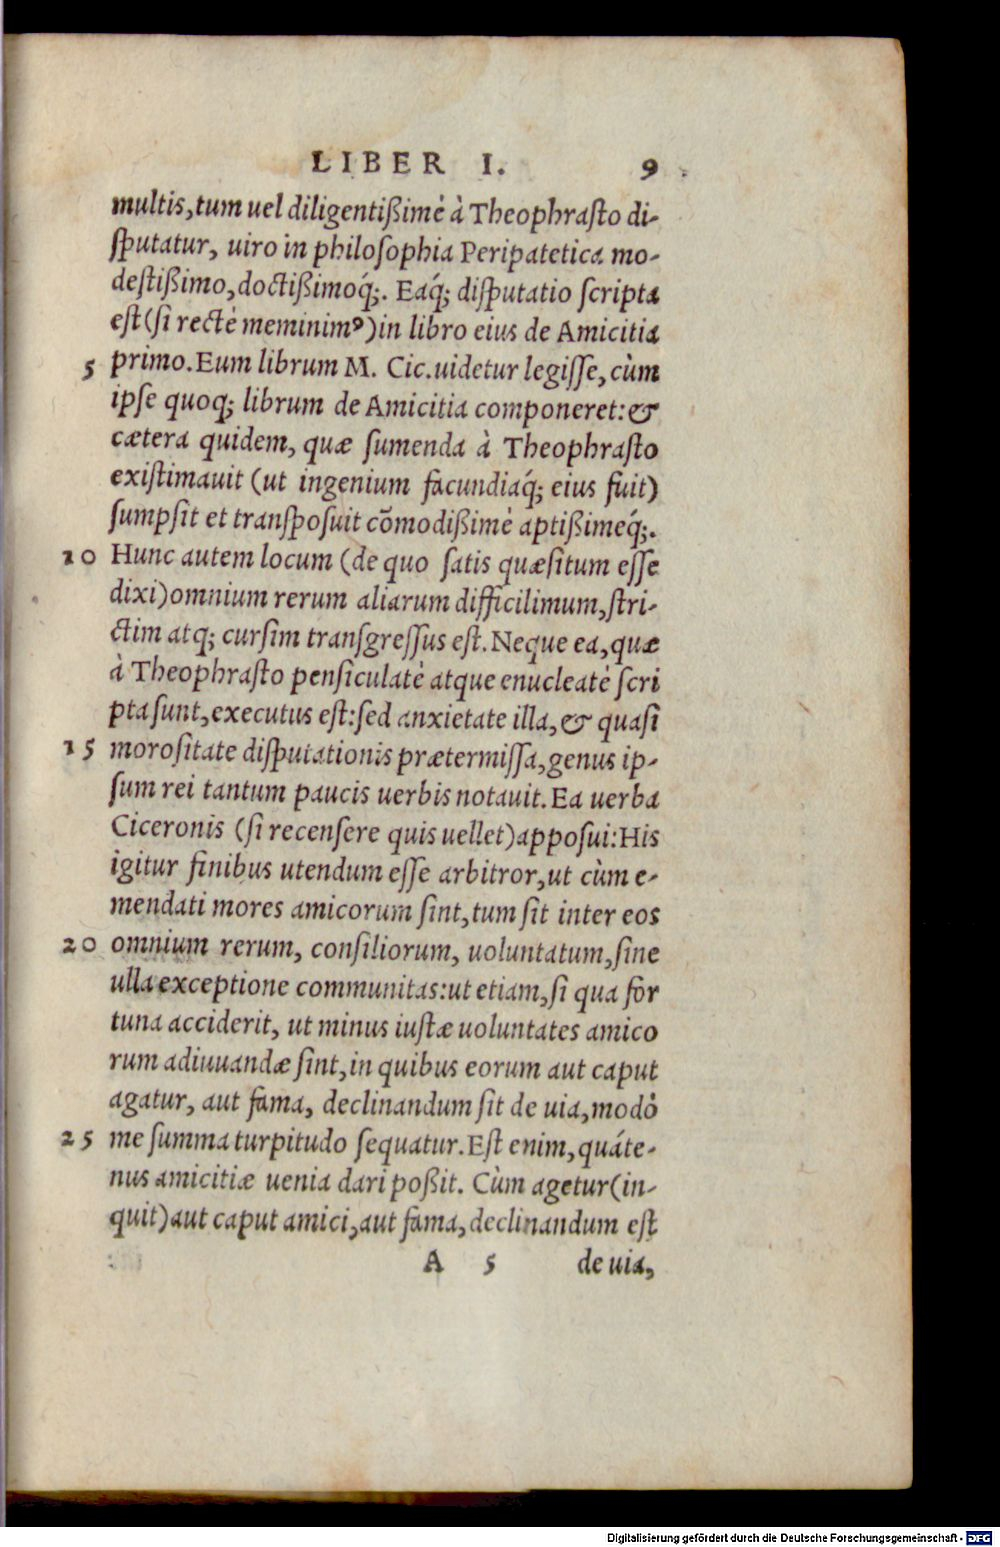 LIBER I. 9
multis, tum uel diligentißimè à Theophrasto di-
sputatur, uiro in philosophia Peripatetica mo-
destißimo, doctißimoq́;. Eaq́; disputatio scripta
est (si rectè meminimꝰ) in libro eius de Amicitia
5 primo. Eum librum M. Cic. uidetur legisse, cùm
ipse quoq; librum de Amicitia componeret: &
cætera quidem, quæ sumenda à Theophrasto
existimauit (ut ingenium facundiaq́; eius fuit)
sumpsit et transposuit cõmodißimè aptißimeq́;.
10 Hunc autem locum (de quo satis quæsitum esse
dixi) omnium rerum aliarum difficilimum, stri-
ctim atq; cursim transgressus est. Neque ea, quæ
à Theophrasto pensiculatè atque enucleatè scri
pta sunt, executus est: sed anxietate illa, & quasi
15 morositate disputationis prætermissa, genus ip-
sum rei tantum paucis uerbis notauit. Ea uerba
Ciceronis (si recensere quis uellet) apposui: His
igitur finibus utendum esse arbitror, ut cùm e-
mendati mores amicorum sint, tum sit inter eos
20 omnium rerum, consiliorum, uoluntatum, sine
ulla exceptione communitas: ut etiam, si qua for
tuna acciderit, ut minus iustæ uoluntates amico
rum adiuuandæ sint, in quibus eorum aut caput
agatur, aut fama, declinandum sit de uia, modò
25 me summa turpitudo sequatur. Est enim, quáte-
nus amicitiæ uenia dari poßit. Cùm agetur (in-
quit) aut caput amici, aut fama, declinandum est
A 5 de uia,
Digitalisierung gefördert durch die Deutsche Forschungsgemeinschaft - DFG